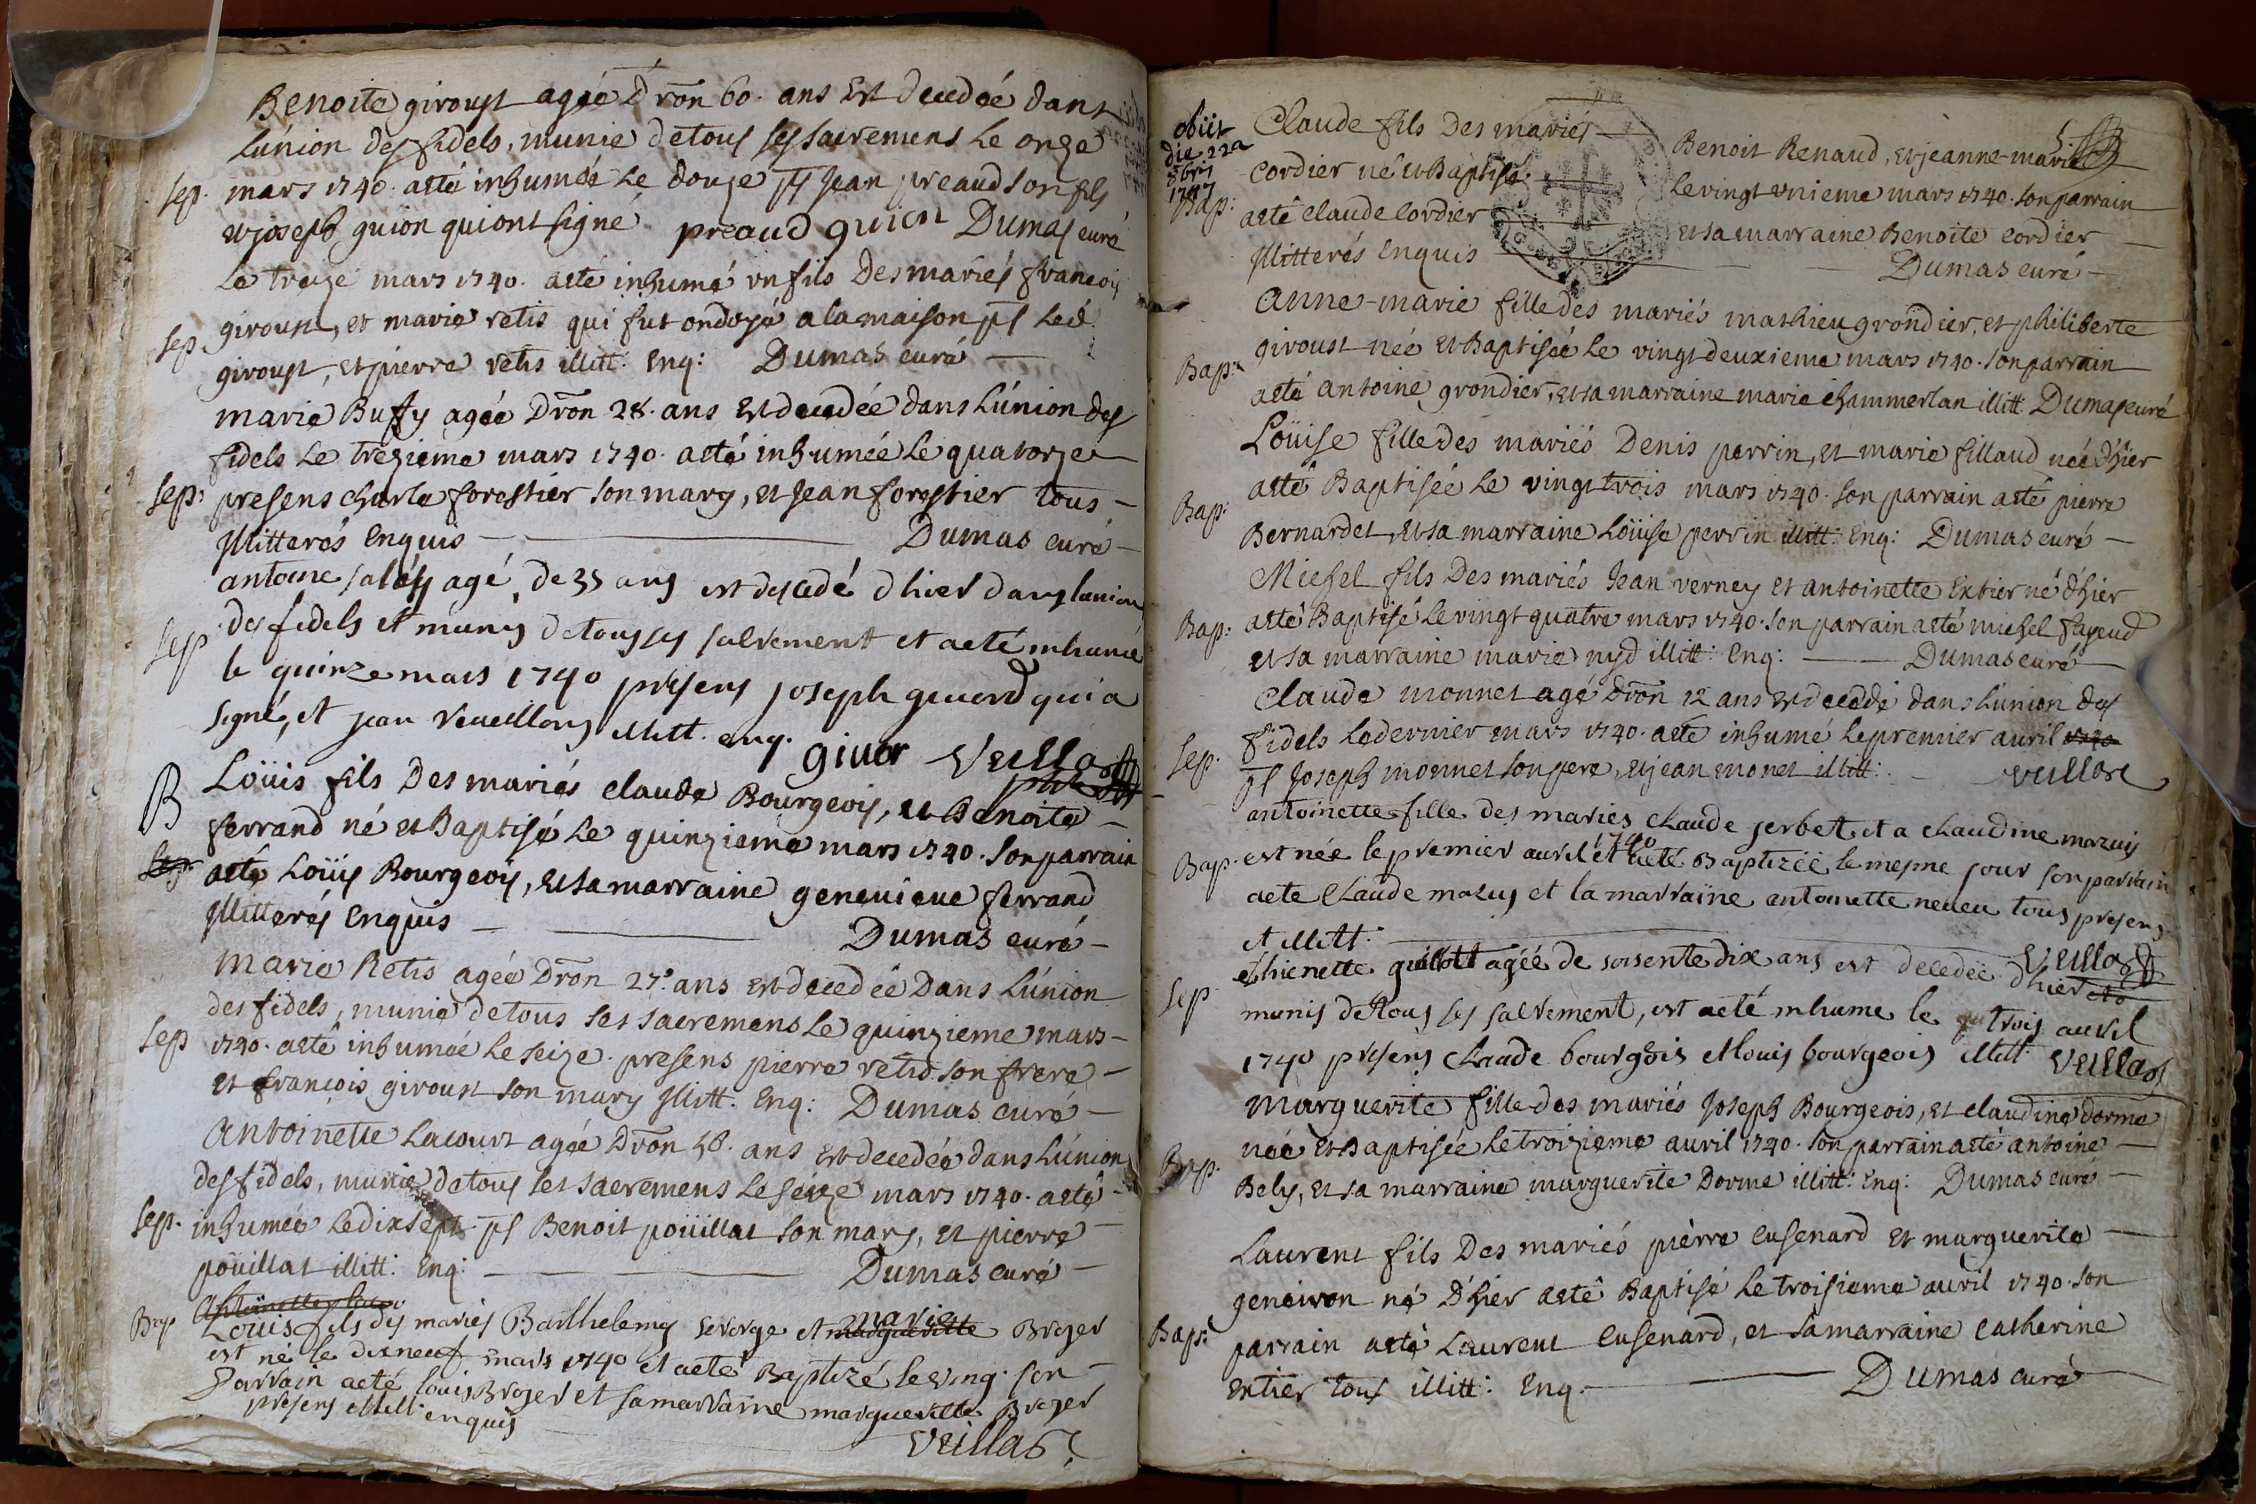 Benoite giroust agée Dron 60. ans Est decedée dans
L'únion des fidels, munie de tous ses sacremens Le onze
sep. mars 1740. aeté inhumée Le douze pñt Jean preaud son fils
et joseph guion qui ont signé preaud guion Dumas curé
Le treize mars 1740. aeté inhumé un fils Des mariés francois
sep giroust, et marie retis qui fut ondoyé a la maison
giroust, et pierre retis illitt: Enq: Dumas curé
marie Buffy agée Dron 28. ans Est decedée dans L'únion des
fidels Le trezieme mars 1740. aeté inhumée Le quatorze
sep: presens charle forestier son mary, et Jean forestier tous
Illitterés Enquis Dumas curé
antoine agé de 35 ans est decedé d hier dans lunion
sep des fidels et munis de tous ses salrement et aeté inhumé
le quinze mars 1740 presens joseph givord qui a
signé, et jean veueillon illitt. enq. givor Veillas
B Loüis fils Des mariés claude Bourgeois, et Benoite
ferrand né et Baptisé Le quinzieme mars 1740. son parrain
aeté Loüis Bourgeois, et sa marraine genevieve ferrand
Illitterés Enquis Dumas curé
marie Retis agée Dron 27. ans Est decedée Dans L'únion
des fidels, munie de tous ses sacremens Le quinzieme mars
sep 1740. aeté inhumée Le seize. presens pierre retis son frere
et francois giroust son mary Illitt. Enq: Dumas curé
Antoinette Lacour agée Dron 58. ans Est decedée dans L'únion
des fidels, munie de tous ses sacremens Le seize mars 1740. aeté
sep. inhumée Le dix sept. pñt Benoit poüillat son mary, et pierre
poüillat illitt: Enq: Dumas curé
Bap Louis fils des mariés Barthelemy et marie Broyer
est né le dixneuf mars 1740 et aeté Baptizé le ving. son
Parrain aeté louis Broyer et sa marraine margueritte Broyer
presens illitt enquis
Veillas
obiit
die 22a
8bris
1787
Claude fils Des mariés Benoit Renaud, et jeanne-marie
cordier né et Baptisé Le vingt unieme mars 1740. son parrain
Bap: aeté claude Cordier et sa marraine Benoite cordier
Illitterés Enquis Dumas curé
Anne-marie fille des mariés mathieu grondier, et philiberte
giroust née et Baptisée Le vingt deuxieme mars 1740. son parrain
Bap: aeté antoine grondier, et sa marraine marie chammerlan illitt Dumas curé
Loüise fille des mariés Denis perrin, et marie fillaud née d'hier
aeté Baptisée Le vingt trois mars 1740. son parrain aeté pierre
Bap: Bernardet, et sa marraine Loüise perrin illitt: Enq: Dumas curé
Michel fils Des mariés Jean verney et antoinette Extier né d'hier
Bap: aeté Baptisé Le vingt quatre mars 1740. son parrain aeté michel fayeud
et sa marraine marie nyd illitt: Enq: Dumas curé
Claude monnet agé Dron 12 ans Est decedé dans L'únion des
fidels Le dernier mars 1740. aeté inhumé Le premier avril 1740
sep. pñt Joseph monnet son pere, et jean monet illitt: Veillas
antoinette fille des mariés Claude jerbet et a Claudine mazuy
Bap. est née le premier avril 1740 et aeté Baptizéé le mesme jour son parrain
aete Claude mazuy et la marraine antoinette neveu tous presens
et illitt. Veillas
ethienette agéé de soisente dix ans est decedéé d hier
sep munis de tous ses salrement, est aeté inhume le trois avril
1740 presens claude bourgois et louis bourgeois illitt. Veillas
Marguerite fille des mariés Joseph Bourgeois, et claudine dorme
née et Baptisée Le troizieme avril 1740. son parrain aeté antoine
Bap. Bely, et sa marraine marguerite Dorme illitt: Enq: Dumas curé
Laurent fils Des mariés pierre eusenard et marguerite
genevron né D'hier aeté Baptisé Le troisieme avril 1740. son
Bap: parrain aeté Laurent eusenard, et sa marraine catherine
Extier tous illitt: Enq. Dumas curé